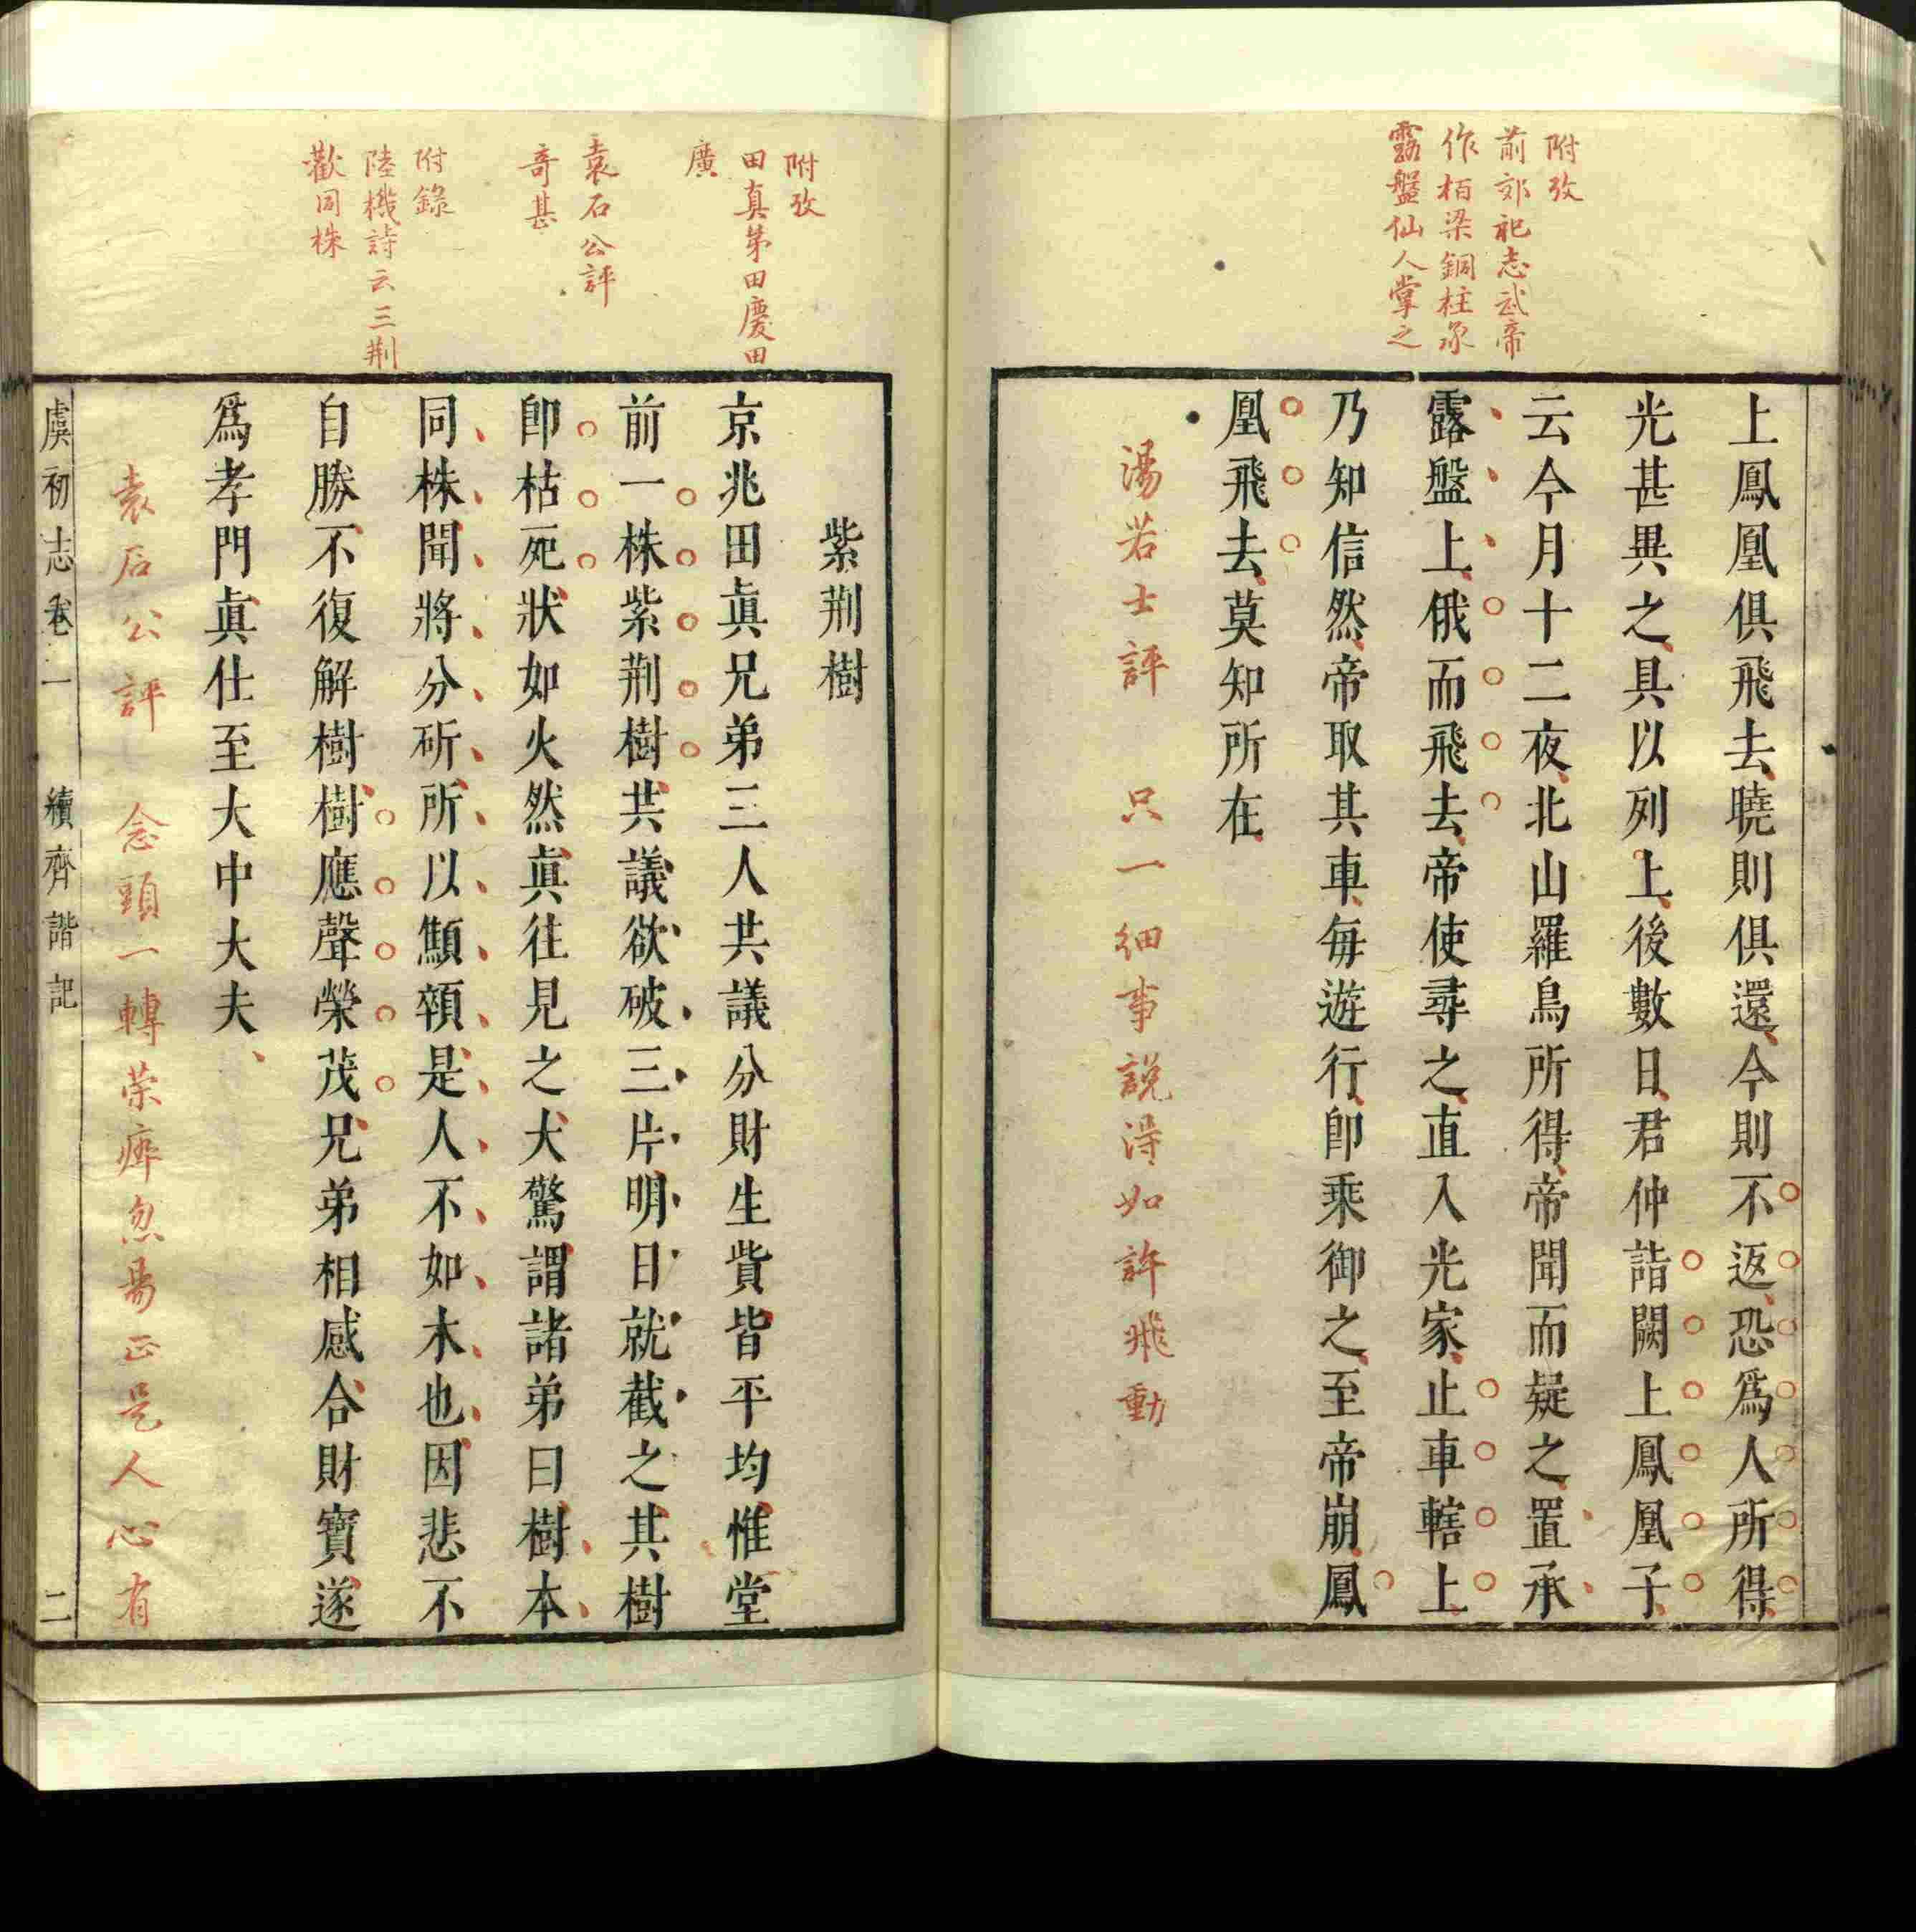 附攷
前郊祀志武帝
作栢梁銅柱承
露盤仙人掌之
上鳳凰俱飛去曉則俱還今則不返恐爲人所得
光甚異之具以列上後數日君仲詣闕上鳳凰子
云今月十二夜北山羅鳥所得帝聞而疑之置承
露盤上俄而飛去帝使尋之直入光家止車轄上
乃知信然帝取其車每遊行卽乘御之至帝崩鳳
凰飛去莫知所在
湯若士評 只一細事説得如許飛動
附攷
田真第田慶田
廣
袁石公評
奇甚
附錄
陸機詩云三荆
歡同株
紫荆樹
京兆田眞兄弟三人共議分財生貲皆平均惟堂
前一株紫荆樹共議欲破三片明日就截之其樹
卽枯死狀如火然眞往見之大驚謂諸弟曰樹本
同株聞將分斫所以顦顇是人不如木也因悲不
自勝不復解樹樹應聲榮茂兄弟相感合財寶遂
爲孝門眞仕至大中大夫
袁石公評 念頭一轉荣瘁忽易正是人心有
虞初志卷一 續齊諧記 二